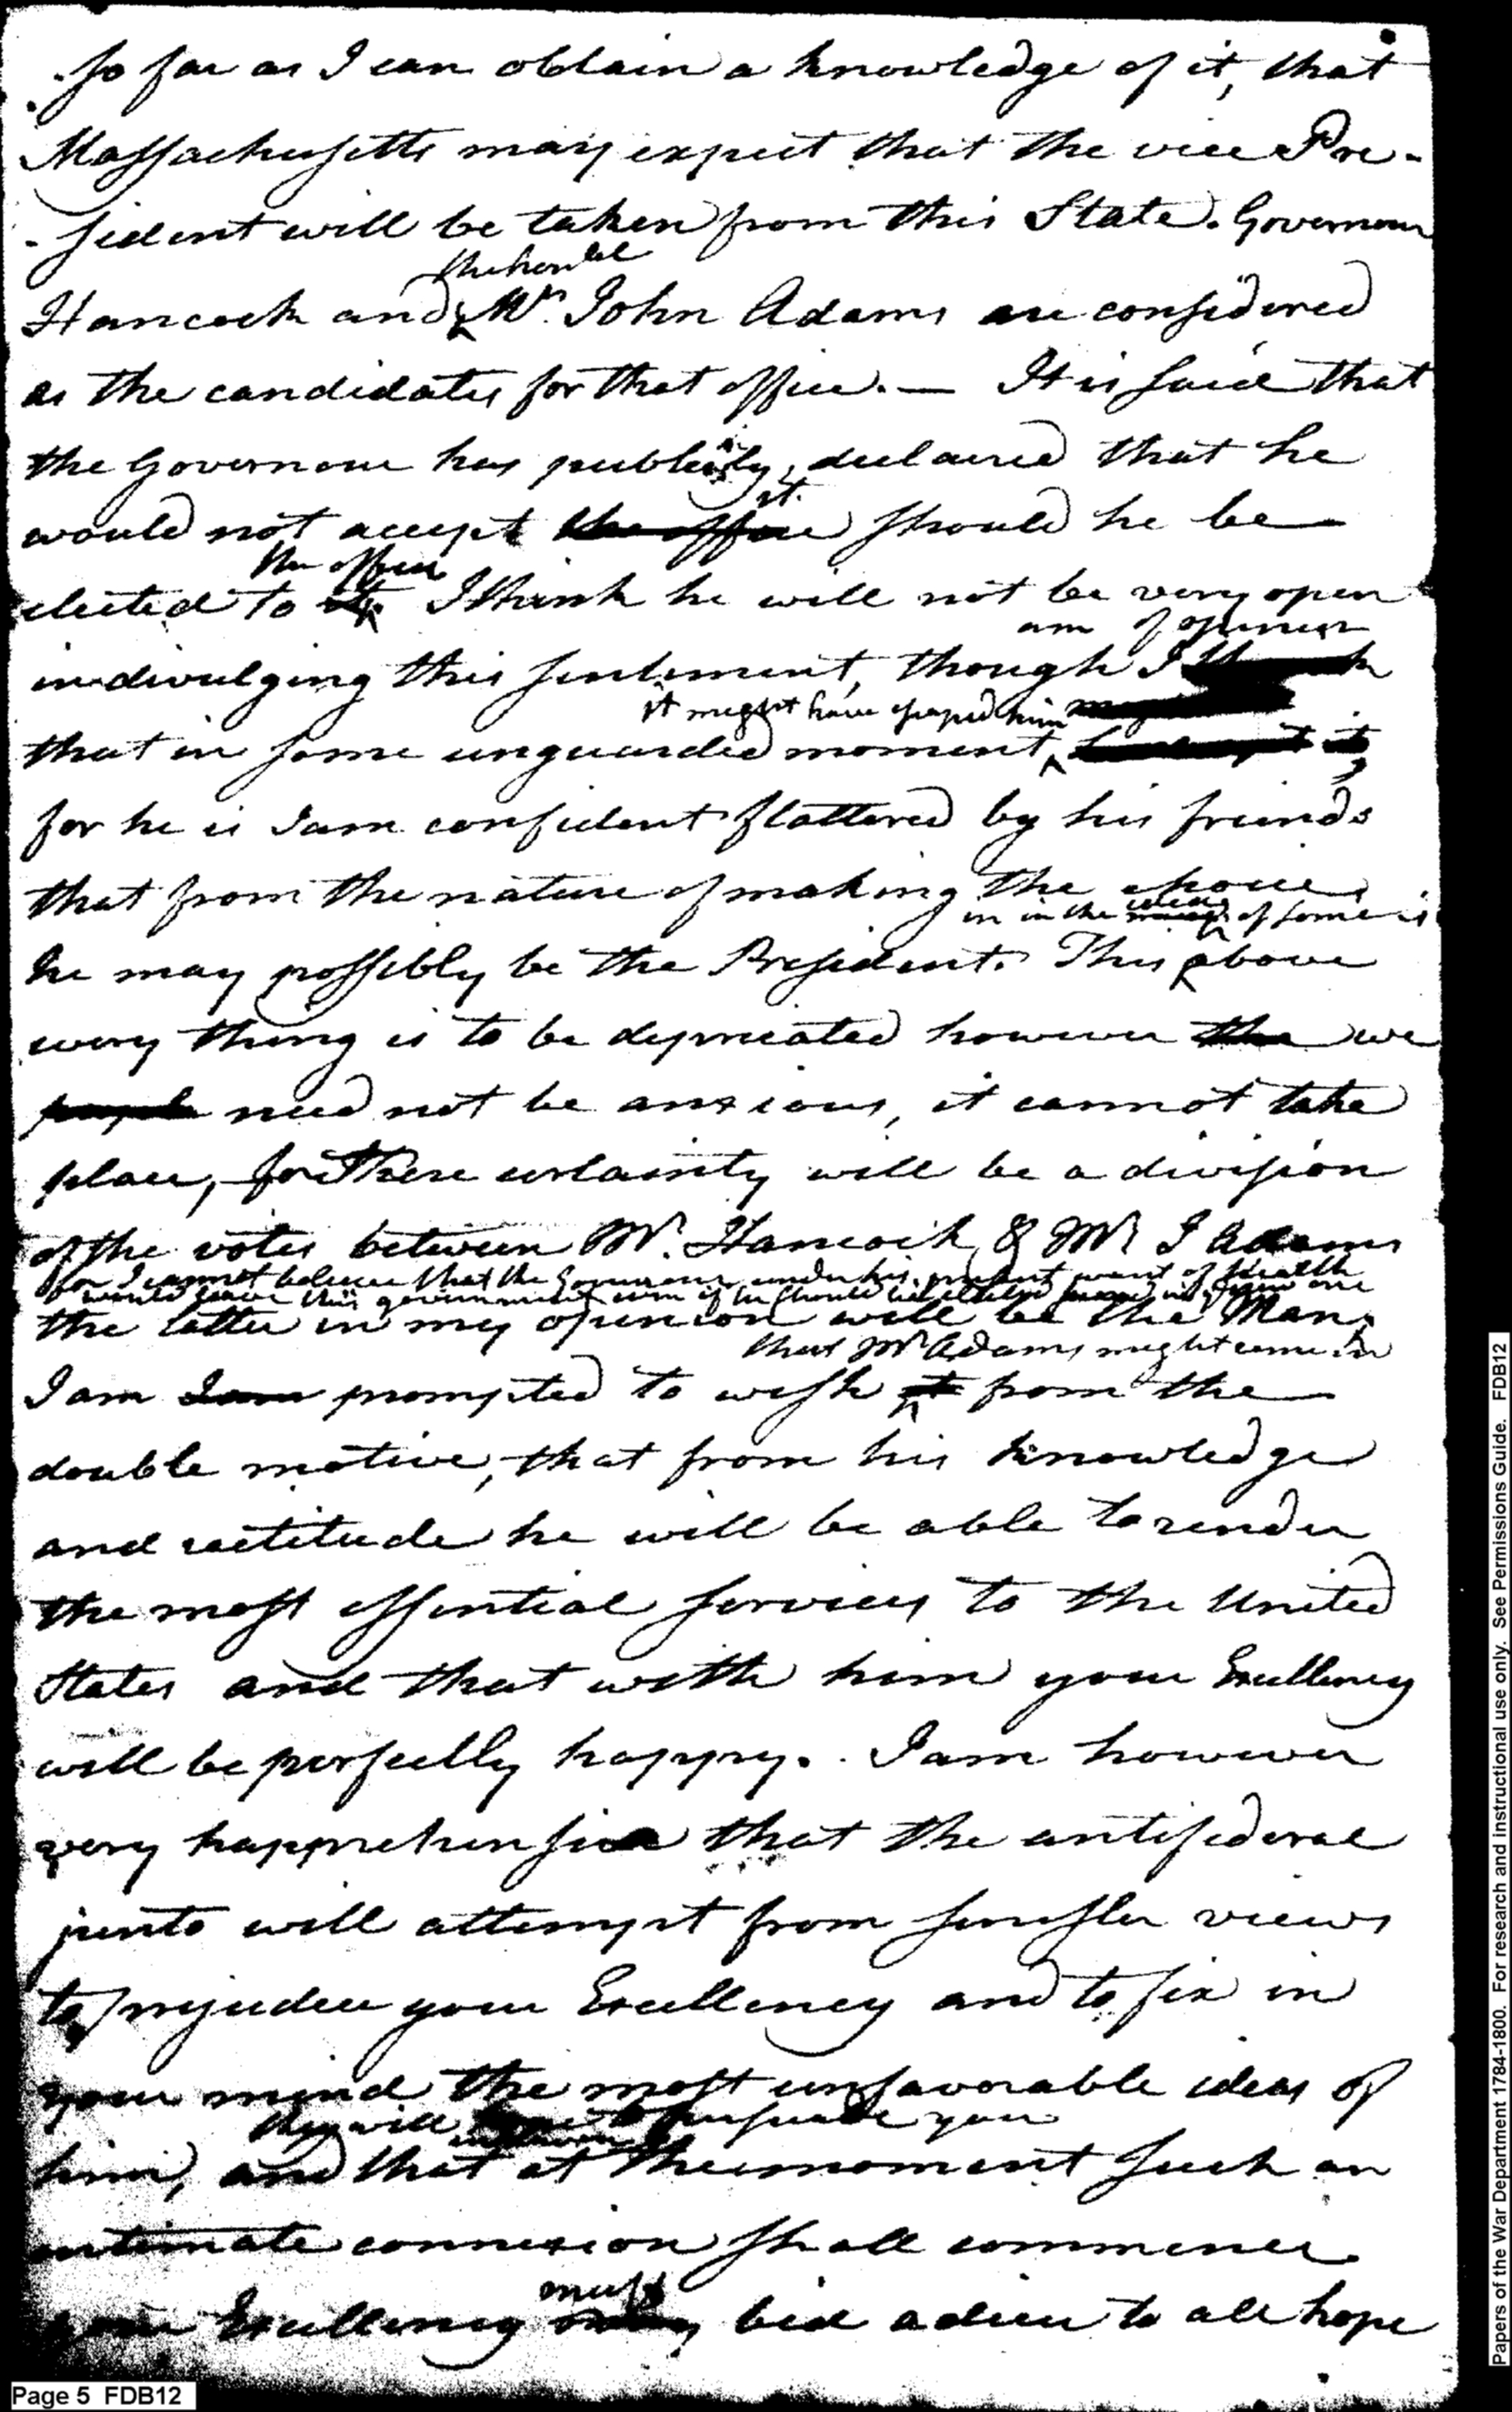 so far as I can obtain a knowledge of it, that
Massachusetts may expect that the vice Pre-
-sident will be taken from this State. Governour
the honbl
Hancock and Mr. John Adams are considered
as the candidates for that office. — It is said that
the Governour has publicly, declared that he
it.
would not accept the office should he be
the office
elected to it. I think he will not be very open
am of opinion
in divulging this sentiment, though I think
it might have escaped him
that in some unguarded moment,
for he is I am confident flattered by his friends
that from the nature of making the choice
in in the of some is
he may possibly be the President. This above
every thing is to be depricated however the we
people need not be anxious, it cannot take
place, for there certainty will be a division
of the votes between Mr. Hancock, & Mr J Adams
for I cannot believe that the Governour under his present want of health
would leave this government even if he should be elected
the latter in my opinion will be the Man.
that Mr Adams might come in
I am I am prompted to wish it from the
double motive, that from his knowledge
and rectitude he will be able to render
the most essential services to the United
States and that with him your Excellency
will be perfectly happy. I am however
very happrehensive that the antifederal
junto will attempt from sinester views
to prejudice your Excellency and to fix in
your mind the most unfavorable ideas of
they will persuade you
him, and that at the moment such an
intimate connexion shall commence
must
your Excellency may bid adieu to all hope
Page 5 FDB12
Papers of the War Department 1784-1800. For research and instructional use only. See Permissions Guide. FDB12